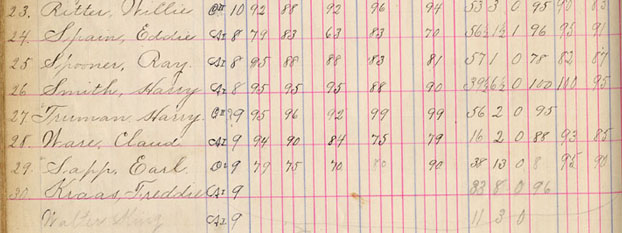 23. Ritter, Willie 10 92 88 92 96 94 53 3 0 95 90 83
24. Spain, Eddie A1 8 79 83 63 83 70 56½ 1 96 95 91
25. Spooner, Ray A1 8 95 88 88 83 81 57 1 0 78 82 87
26. Smith, Harry A1 8 95 95 95 88 90 39½ 6½ 0 100 100 95
27. Truman, Harry 9 95 96 92 99 99 56 2 0 95
28. Ware, Claud A1 9 94 90 84 75 79 16 2 0 88 93 85
29. Sapp, Earl 9 79 75 70 80 90 38 13 0 8 95 90
30. Kraas, Freddie A1 9 83 8 0 96
Walter King A1 9 11 3 0